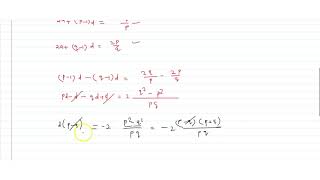 2a + (p-1)d = 2q/p
2a + (q-1)d = 2p/q
(p-1)d - (q-1)d = 2q/p - 2p/q
pd - d - qd + d = 2 q² - p² / pq
d(p-q) = -2 p² - q² / pq = -2 (p-q)(p+q) / pq